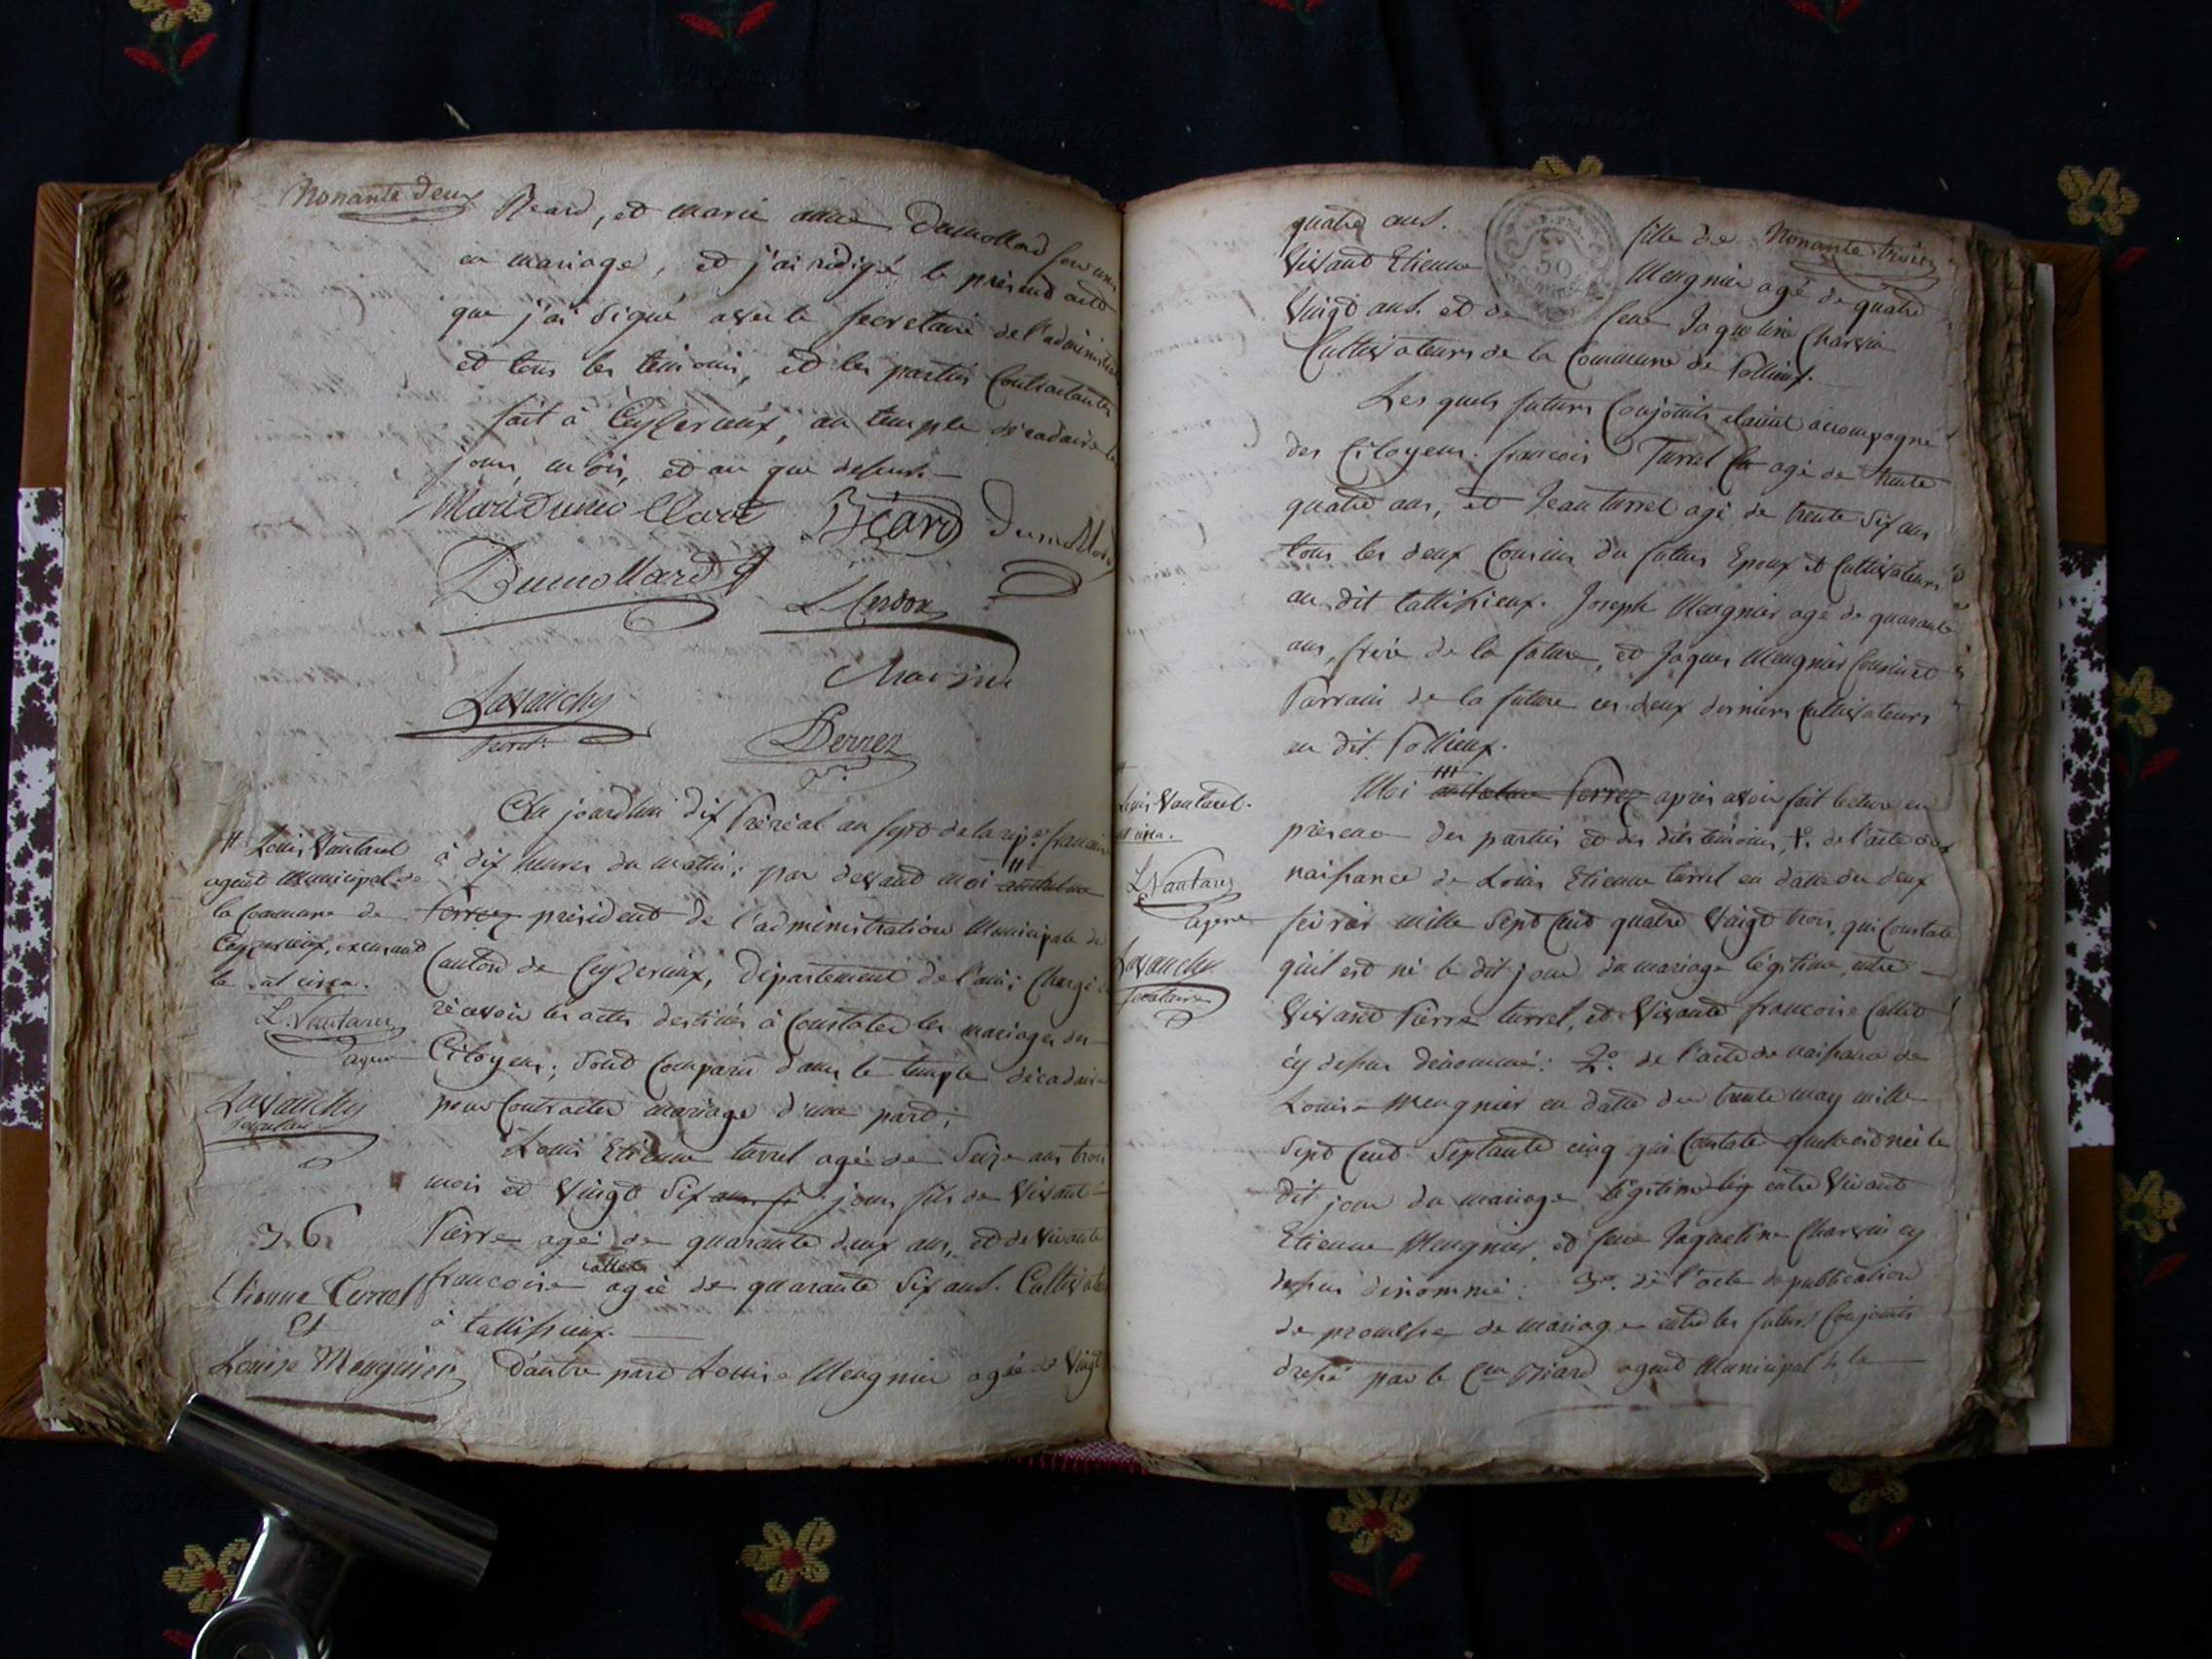 Nonante deux
Reard, et marie anne Dumollard sont unis
en mariage, et j'ai rédigé le présend acte
que j'ai Signé avec le secretaire de l'administ
et tous les temoins, et les parties Contractantes
fait à Ceyzerieux, au temple décadaire le
jour, mois, et an que dessus.
Marie Dumollard Réard Dumollard
Dumollard
Lavanchy
secret.
Au jourdhui dix Préréal an sept de la rép.e francaise
à dix heures du matin; par devand moi anthelme
ferrez président de l'administration Municipale du
Canton de Ceyzerieux, Département de l'ain; Chargé de
récevoir les actes destinés à Constater les mariages des
Citoyens; Sont Comparu dans le temple décadaire
pour Contracter mariage d'une pard;
Louis Etienne turrel agé de Seize ans trois
mois et Vingt Six jours fils de Vivant
Pierre agé de quarante deux ans, et de Vivante
francoise Callet agée de quarante Six ans. Cultivateurs
à tallissieux.
D'autre pard Louise Meugnier agée de Vingt
# Louis Vautaret
agent Municipal de
la Commune de
Ceyzerieux, exercand
le
L. Vautaret
agent
Lavanchy
secretaire
36
Etienne Turrel
Et
Louise Meugnier
Nonante trois
quatre ans. fille de
Vivant Etienne Meugnier agé de quatre
Vingt ans. et de feue Jaqueline Charvin
Cultivateurs de la Commune de Pollieux.
Les quels futurs Conjoints etaient accompagné
des Citoyens. francois Turrel agé de trente
quatre ans, et Jean turrel agé de trente Six ans
tous les deux Cousins du futur Epoux et Cultivateurs
au dit tallissieux. Joseph Meugnier agé de quarante
ans, frère de la future, et Jaques Meugnier Cousin et
Parrain de la future ces deux derniers Cultivateurs
au dit Pollieux.
Moi anthelme ferrez après avoir fait lecture en
présence des parties et des dits témoins, 1º. de l'acte de
naissance de Louis Etienne turrel en datte du deux
fevrier mille Sept Cend quatre Vingt trois, qui Constate
qu'il est né le dit jour du mariage légitime, entre
Vivand Pierre turrel, et Vivante francoise Callet
cy dessus dénommé: 2º. de l'acte de naissance de
Louise Meugnier en datte du trente may mille
Sept Cend Septante cinq qui Constate quelle est née le
dit jour du mariage légitime entre Vivant
Etienne Meugnier, et feue Jaqueline Charvin cy
dessus dénommé: 3º. de l'acte de publication
de promesse de mariage entre les futurs Conjoints
dressé par le Cen Réard agent Municipal de la
Louis Vautaret.
L. Vautaret
agent
Lavanchy
secretaire